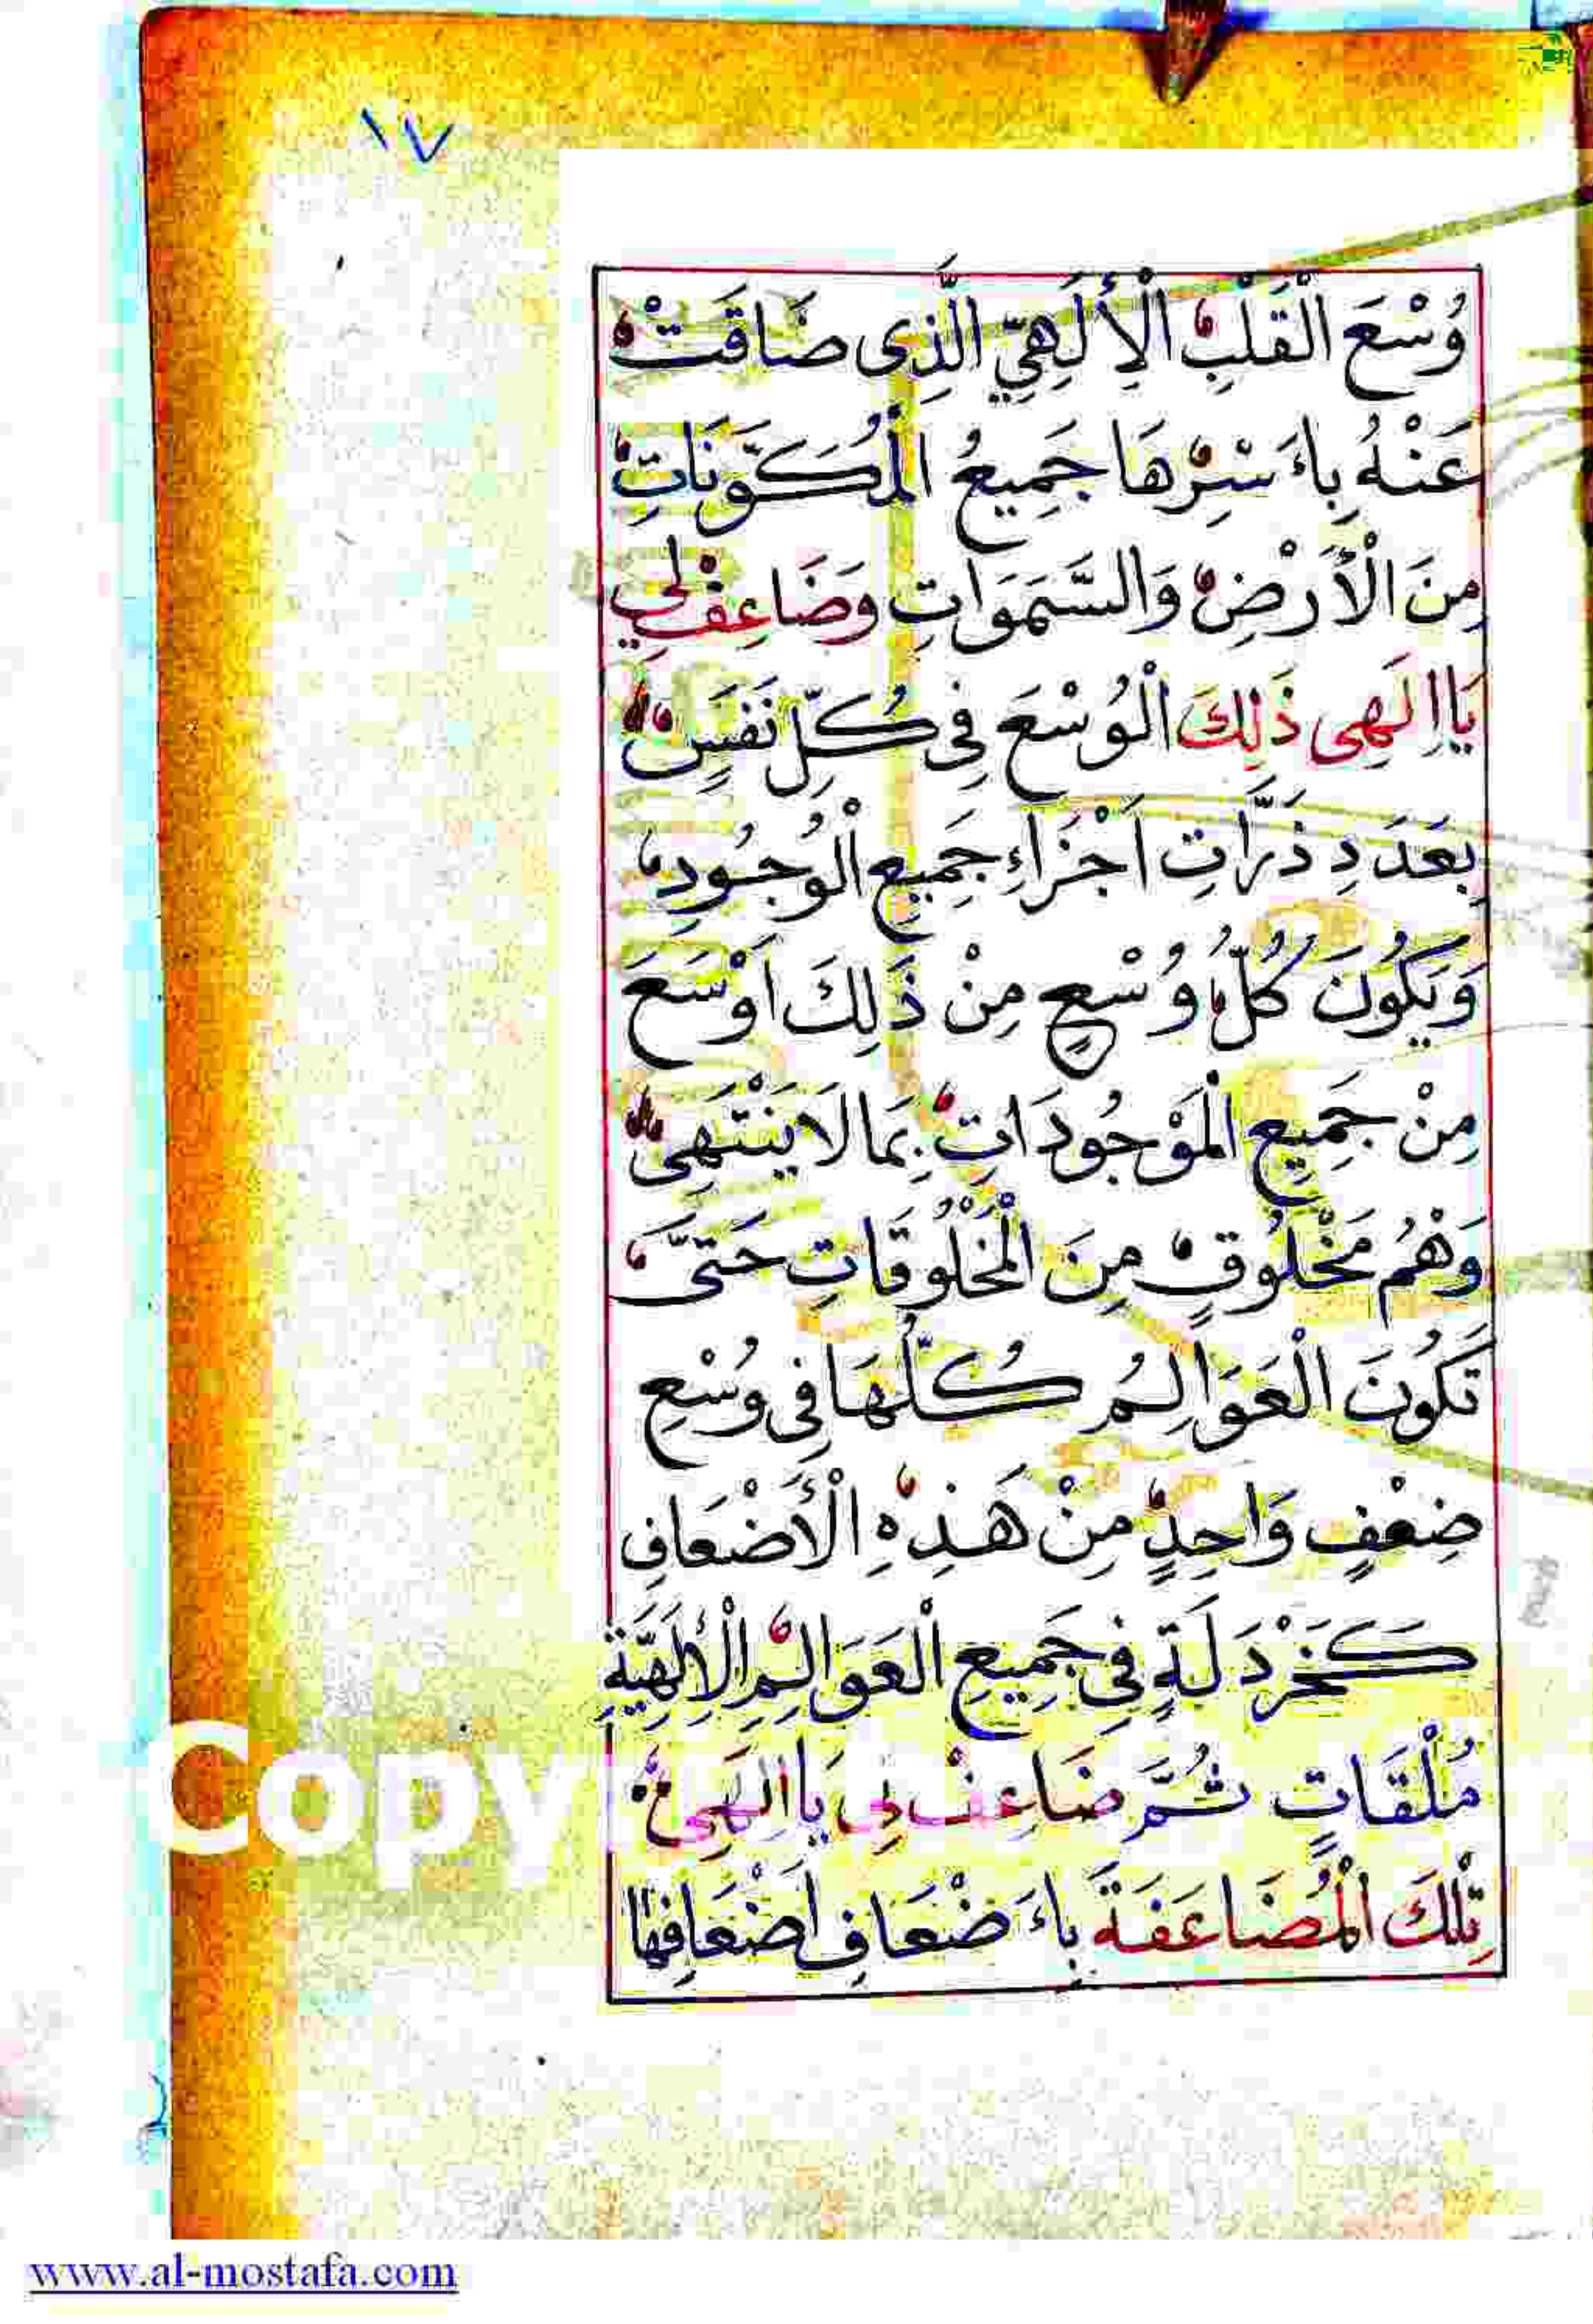 ١٧
وُسْعَ الْقَلْبِ الْإِلَهِيِّ الَّذِى ضَاقَتْ
عَنْهُ بِاءَسْرِهَا جَمِيعُ الْمُكَوَّنَاتِ
مِنَ الْأَرْضِ وَالسَّمَوَاتِ وَضَاعِفْ لِي
يَا اِلَهِى ذَلِكَ الْوُسْعَ فِى كُلِّ نَفَسٍ
بِعَدَدِ ذَرَّاتِ اَجْزَاءِ جَمِيعِ الْوُجُودِ
وَيَكُونَ كُلُّ وُسْعٍ مِنْ ذَلِكَ اَوْسَعَ
مِنْ جَمِيعِ الْمَوْجُودَاتِ بِمَا لَا يَنْتَهِى
وَهْمُ مَخْلُوقٍ مِنَ الْمَخْلُوقَاتِ حَتَّى
تَكُونَ الْعَوَالِمُ كُلُّهَا فِى وُسْعِ
ضِعْفٍ وَاحِدٍ مِنْ هَذِهِ الْأَضْعَافِ
كَخَرْدَلَةٍ فِى جَمِيعِ الْعَوَالِمِ الْإِلَهِيَّةِ
مُلْقَاتٍ ثُمَّ ضَاعِفْ لِى يَا اِلَهِى
تِلْكَ الْمُضَاعَفَةَ بِاءَضْعَافِ اَضْعَافِهَا
Copy
www.al-mostafa.com